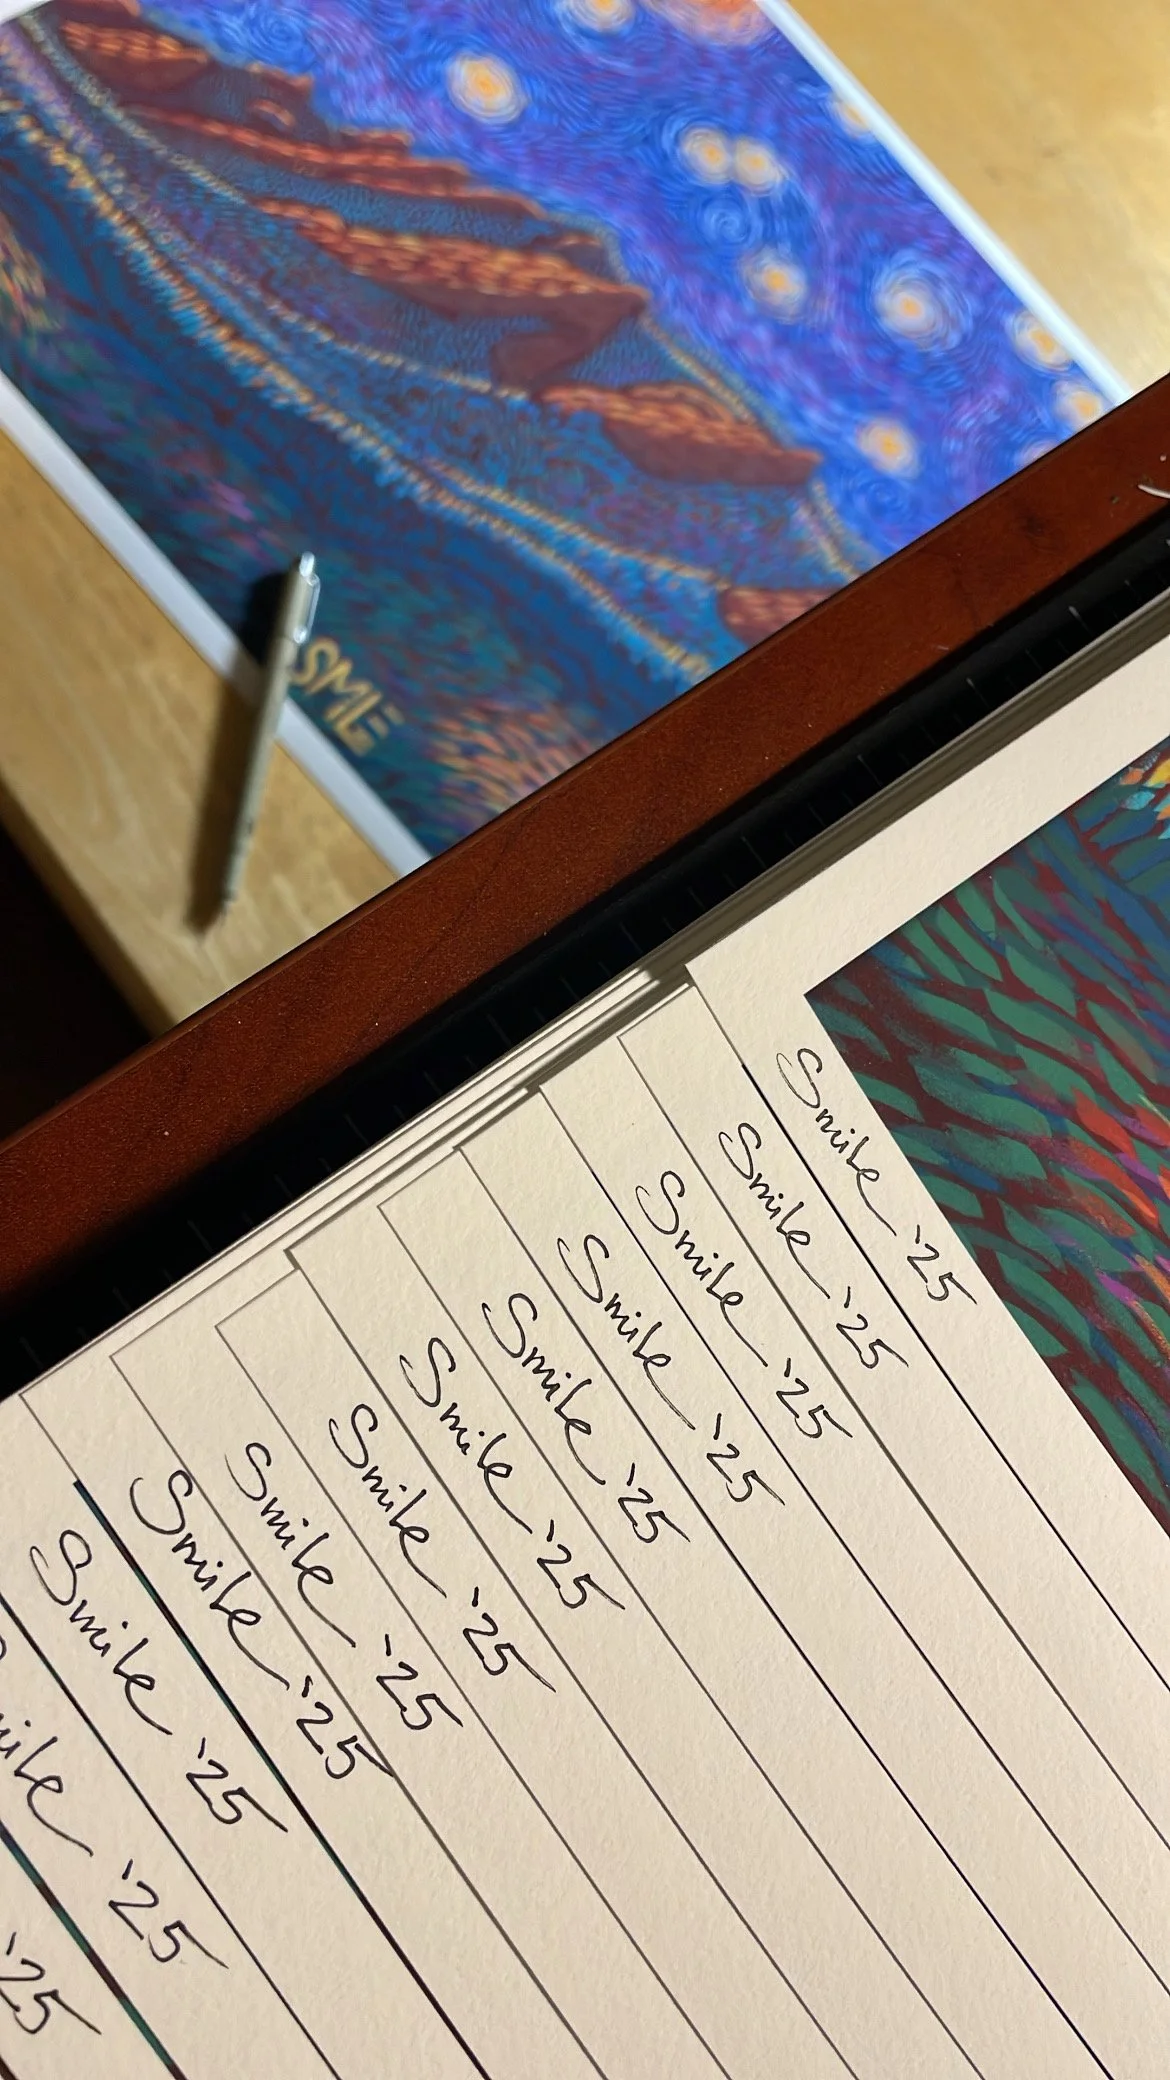 SMLE
Smile '25
Smile '25
Smile '25
Smile '25
Smile '25
Smile '25
Smile '25
Smile '25
Smile '25
Smile '25
'25
'25